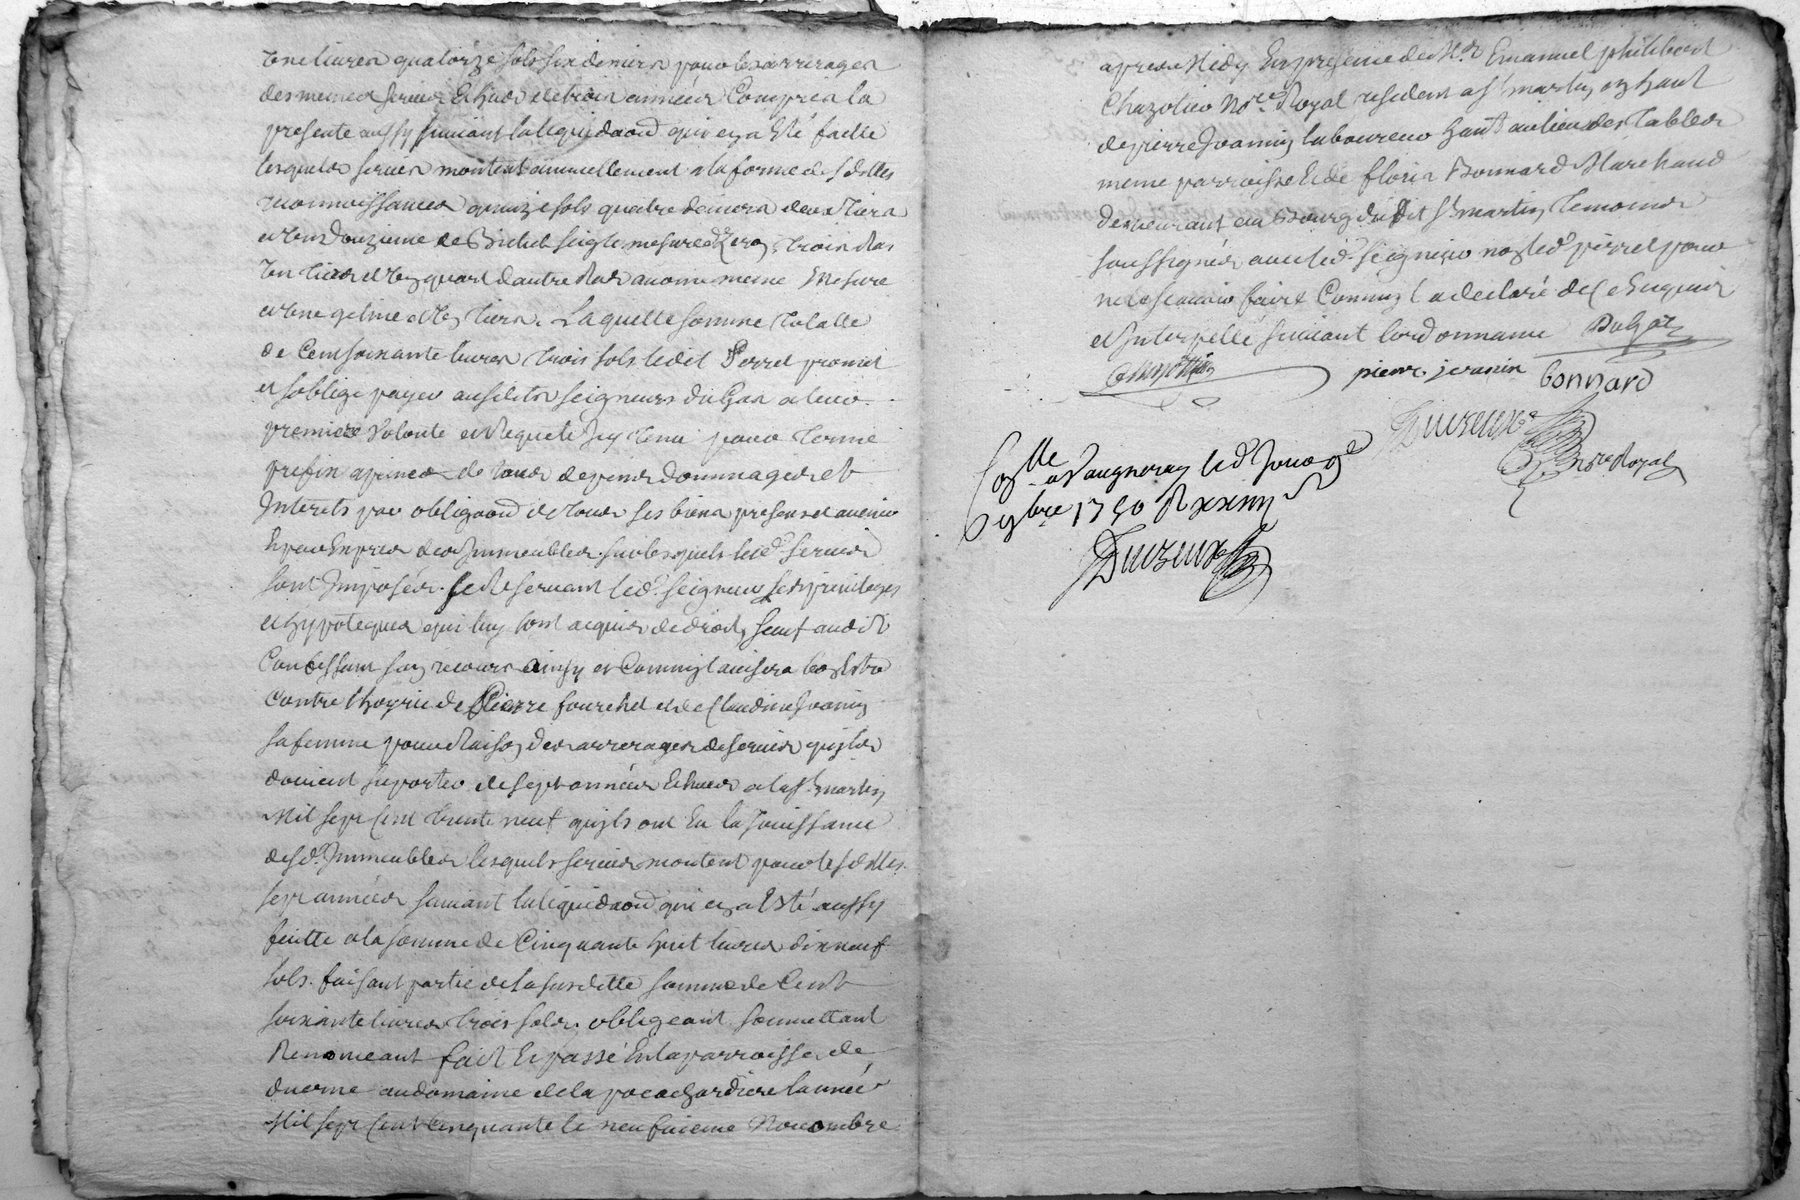 une livres quatorze sols six deniers pour les arrerages
des memes servis Echus de trois années Compris la
presente aussy suivant la liquidaon qui en a Esté faitte
lesquels servis montent annuellement a la forme des d dittes
reconnoissances quinze sols quatre deniers deux tiers
et un douzieme de Bichet seigle mesure , trois Ras
un tiers et un quart d'autre Ras avoine meme Mesure
et une geline et un tiers. Laquelle somme totalle
de Cent soixante livres trois sols ledit Perrel promet
et soblige payer ausdits seigneurs Dugas a leur
premiere volonté et Requete Icy tenu pour terme
prefix a peines de tous depens dommages et
Interets par obligaon de tous ses biens presens et avenir
Et par Expres des Immeubles sur lesquels lesd. servis
sont Imposés. se Reservant led. seigneur ses privileges
et hypoteques qui luy sont acquis de droit, sauf audit
Confessant son recours ainsy et Comme il avisera bon Estre
Contre l'hoyrie de Pierre fourchet et de Claudine Joannin
sa femme pour Raison des arrerages de servis qu'ils
doivent suporter de sept années Echues a la st martin
Mil sept Cent trente neuf qu'ils ont Eu la Jouissance
desd. Immeubles lesquels servis montent pour lesd dittes
sept années suivant la liquidaon qui en a Esté aussy
faitte a la somme de Cinquante huit livres dix neuf
sols. faisant partie de la susditte somme de Cent
soixante livres trois sols, obligeant soumettant
Renonceant fait Et passé En la parroisse de
duerne au domaine de la l'année
Mil sept Cent Cinquante le neufvieme Novembre
apres Midy En presence de Mr Emanuel philibert
Chazottier Nore Royal residant a st martin en haut
de pierre Joannin laboureur hant au lieu des tables
meme parroisse Et de floris Bonnard Marchand
demeurant au Bourg dudit st martin temoins
soussignés avec led. seigneur non led. perrel pour
ne le scavoir faire Comme il a declaré de ce Enquis
et Interpellé suivant l'ordonnance Dugas
Chazottier pierre joanin bonnard
Duvzeux
Nore Royal
Conlle a Vaugneray led Jour 9e
9bre 1750 R xxiiii s
Duvzeux